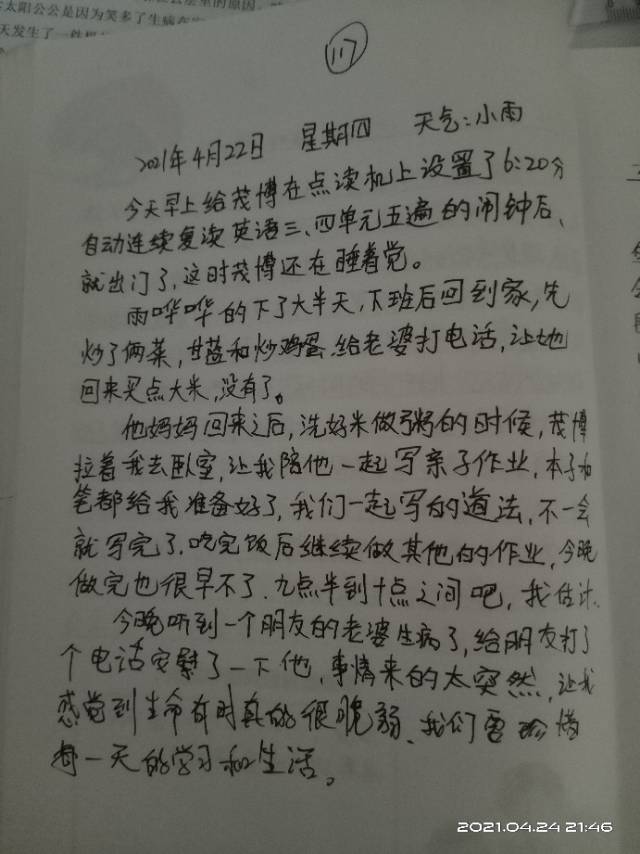 太阳公公是因为笑多了生病
117
2021年4月22日 星期四 天气:小雨
今天早上给茂博在点读机上设置了6:20分
自动连续复读英语三、四单元五遍的闹钟后、
就出门了,这时茂博还在睡着觉。
雨哗哗的下了大半天,下班后回到家,先
炒了俩菜,甘蓝和炒鸡蛋.给老婆打电话,让她
回来买点大米,没有了。
他妈妈回来之后,洗好米做粥的时候,茂博
拉着我去卧室,让我陪他一起写亲子作业,本子和
笔都给我准备好了,我们一起写的道法,不一会
就写完了.吃完饭后继续做其他的作业,今晚
做完也很早不了.九点半到十点之间吧,我估计.
今晚听到一个朋友的老婆生病了,给朋友打了
个电话安慰了一下他,事情来的太突然,让我
感觉到生命有时真的很脆弱、我们要珍惜
每一天的学习和生活。
2021.04.24 21:46